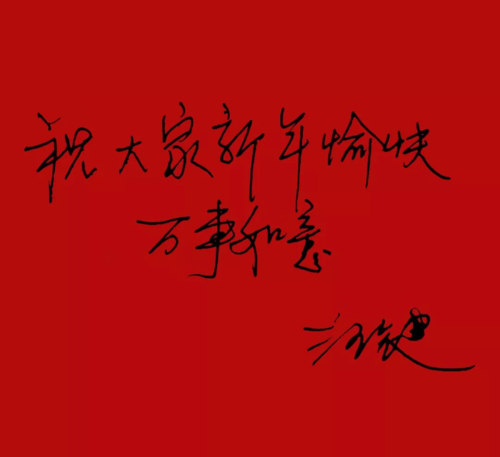 祝大家新年愉快
万事如意